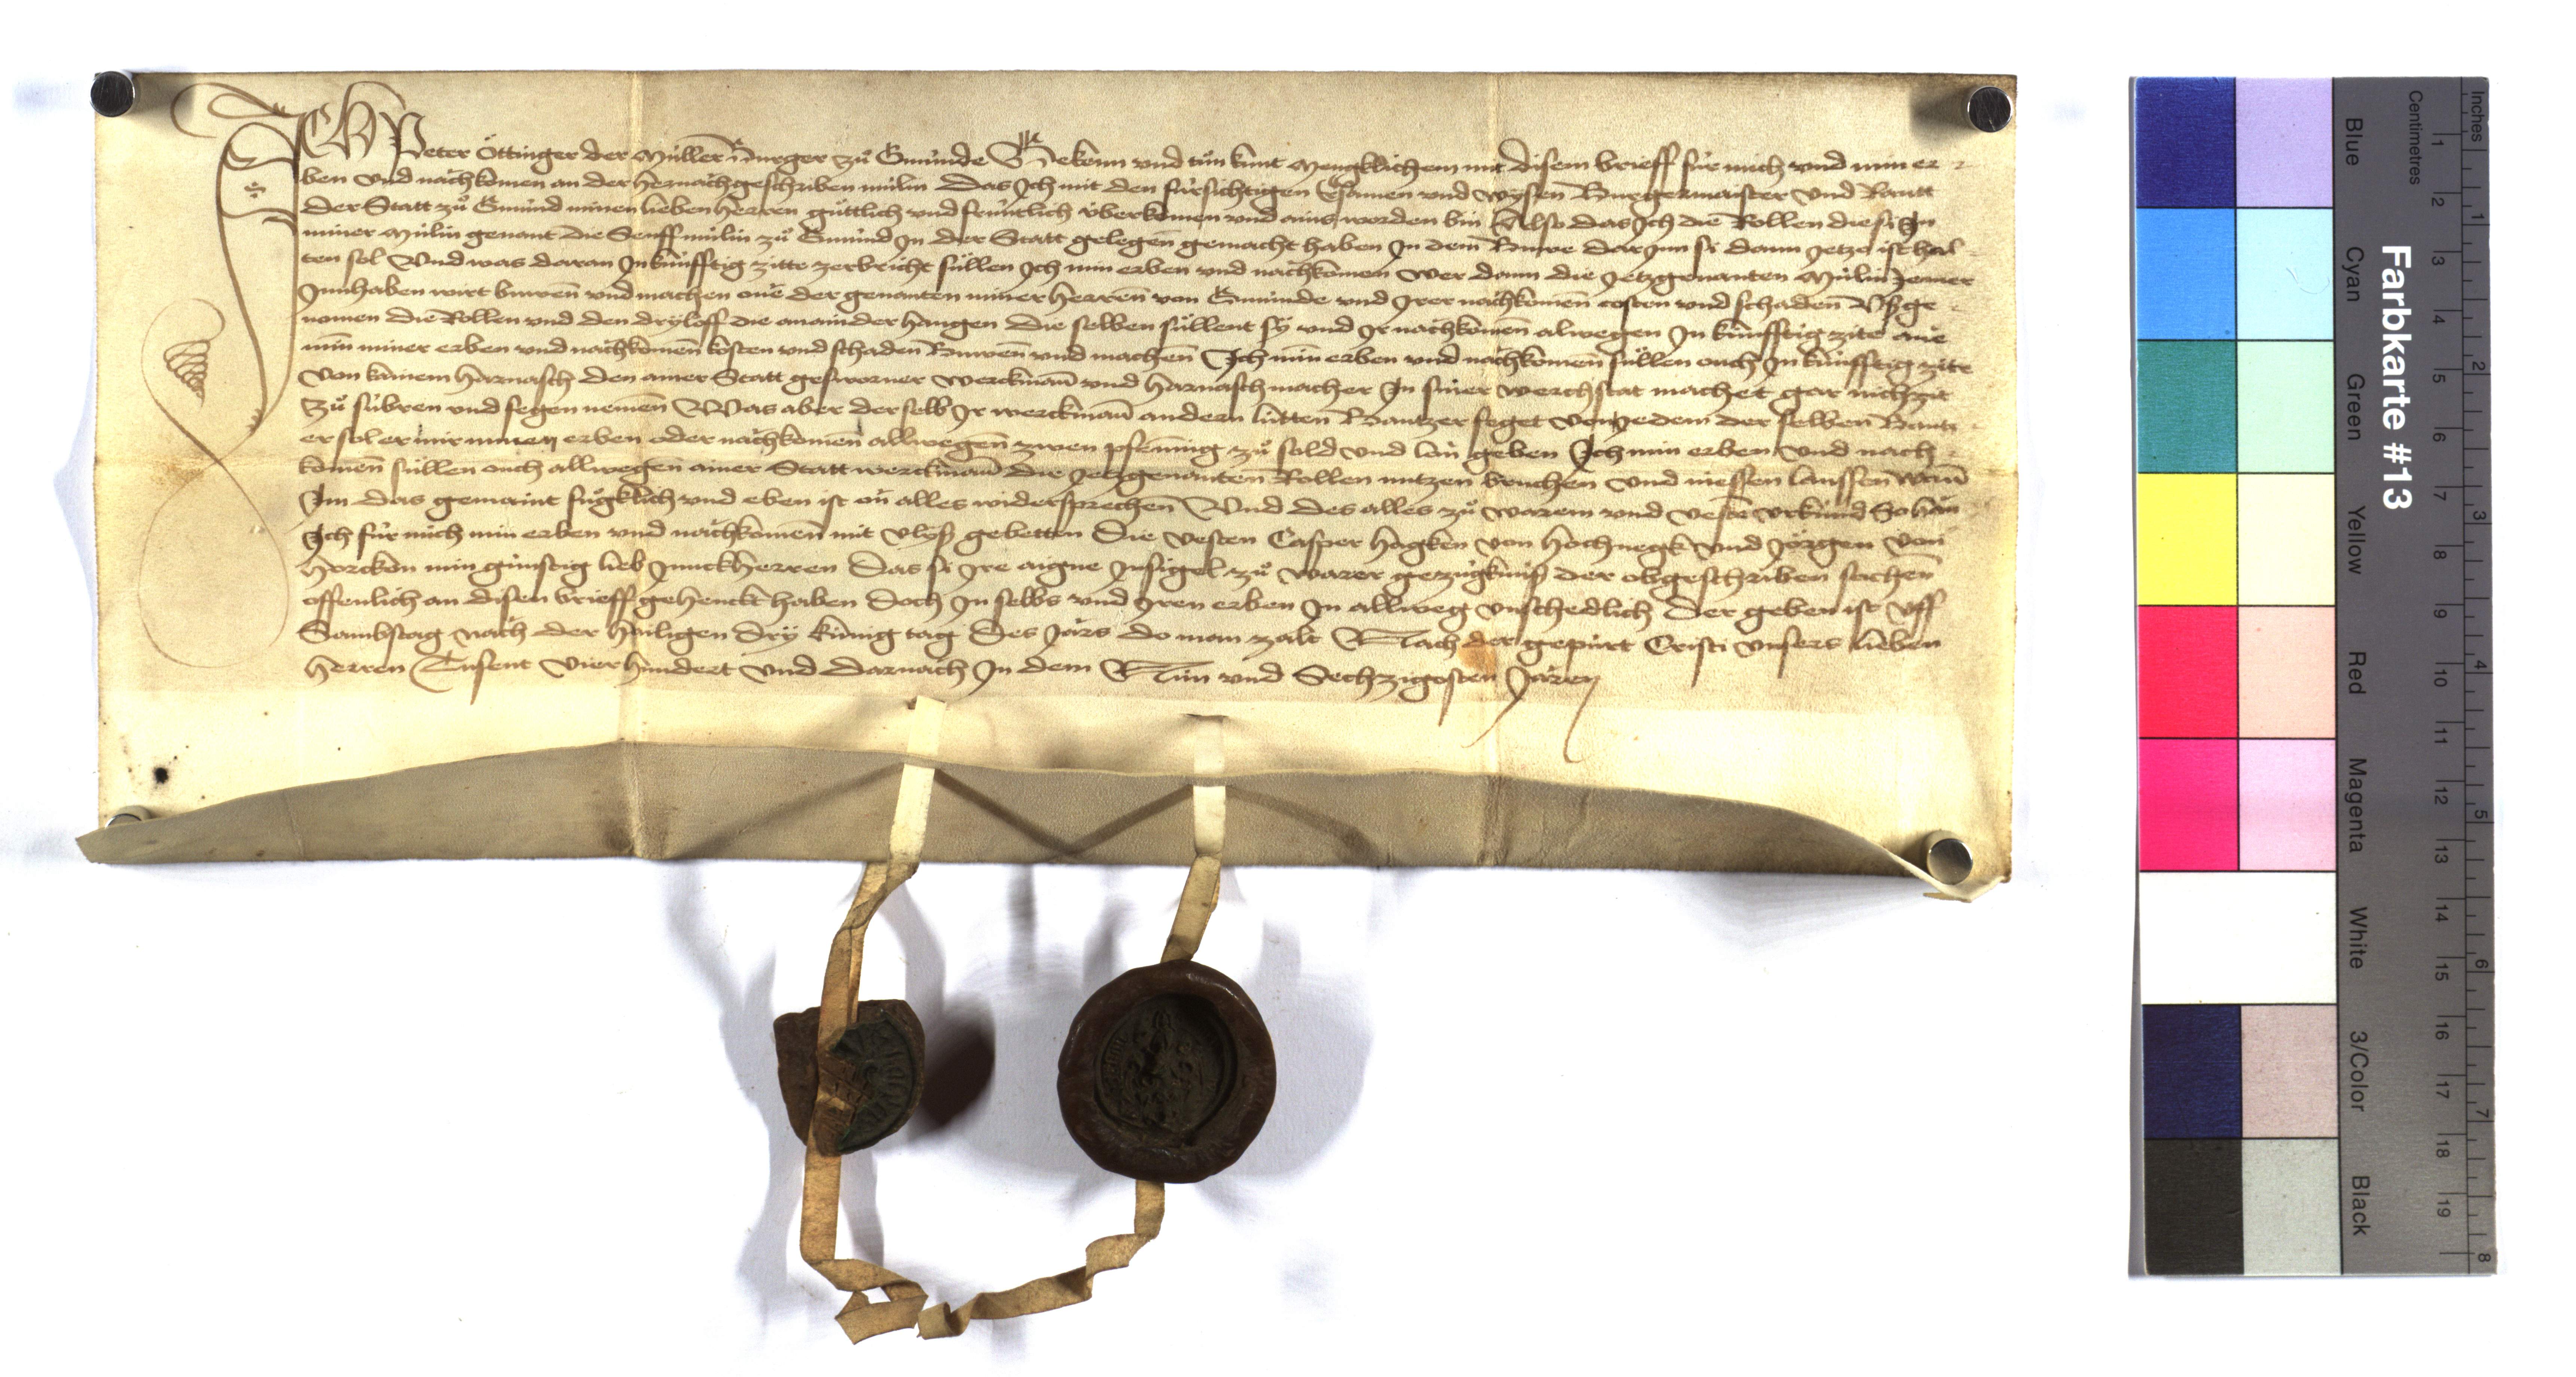 Ich Peter Öttinger der Müller Burger zů Gmünde Bekenn vnd tůn kunt Mengklichem mit disem brieff für mich vnd min er
ben vnd nachkomen an der hernachgeschriben mülin Das Ich mit den fürsichtigen Ersamen und wysen Burgermaister vnd Rautt
der Statt zů Gmünd minen lieben herren güttlich vnd früntlich überkomen vnd ains worden bin Also das Ich die Rollen die si In
miner Mülin genant die Senffmülin zů Gmünd In der Statt gelegen gemacht haben In dem Buwe darjnn si dann jetzo ist hal
ten sol Vnd was daran In künfftig zitte zerbricht süllen Ich min erben vnd nachkomen wer dann die jetzgenanten Mülin jemer
Innhaben wirt buwen vnd machen one der genanten miner herren von Gmünde vnd Irer nachkomen costen vnd schaden Vßge
nomen die Rollen vnd den dryloff die anainder hangen die selben süllent sy vnd Ir nachkomen alwegen In künfftig zite ane
min miner erben vnd nachkomen kosten vnd schaden Buwen vnd machen Ich min erben vnd nachkomen süllen ouch In künfftig zite
von kainem harnasch den ainer Statt gesworner werckman vnd harnaschmacher In siner werchstat machet gar nichzit
zů sübren vnd fegen nemen Was aber derselb Ir werckman andern lütten Bantzer feget von yedem der selben Bantz
er sol er mir minen erben oder nachkomen allwegen zwen pfenning zů sold vnd lon geben Ich min erben vnd nach
komen süllen ouch allwegen ainer Statt werckman die jetzgenanten Rollen nutzen bruchen vnd niessen laussen wann
Im das gemaint fůgklich vnd eben ist on alles widersprechen Vnd des alles zů warem vnd vesten vrkünd So han
Ich für mich min erben vnd nachkomen mit vlyß gebetten Die vesten Casper hagken von hochnegk vnd Jörgen von
horcken min günstig lieb Junckherren Das si Ire aigne Insigel zů warer gezügknuß der obgeschriben sachen
offenlich an disen brieff gehenckt haben Doch In selbs vnd Iren erben In allweg vnschedlich Der geben ist vff
Sambstag nach der hailigen dry künig tag Des Jars do man zalt Nach der gepürt Cristi vnsers lieben
herren Tusent vierhundert vnd darnach In dem Nün vnd Sechzigosten Jaren
Farbkarte #13
Inches
Centimetres
1 2 3 4 5 6 7 8
1 2 3 4 5 6 7 8 9 10 11 12 13 14 15 16 17 18 19
Blue
Cyan
Green
Yellow
Red
Magenta
White
3/Color
Black